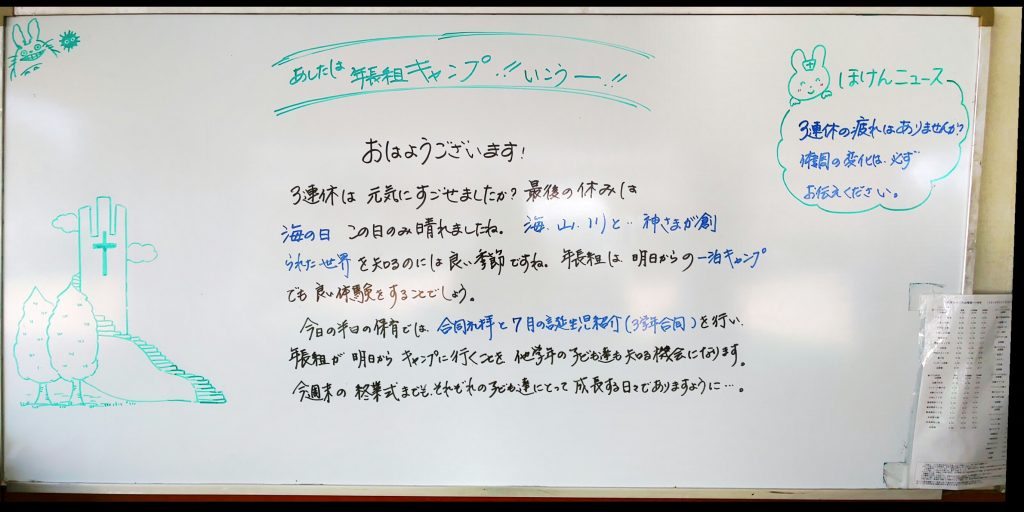 あしたは 年長組 キャンプ!! いこうー!!
ほけんニュース
3連休の疲れはありませんか?
体調の変化は、必ず
お伝えください。
おはようございます!
3連休は 元気にすごせましたか? 最後の休みは
海の日 この日のみ晴れましたね。 海、山、川と… 神さまが創
られた世界を知るのには良い季節ですね。 年長組は 明日からの一泊キャンプ
でも良い体験をすることでしょう。
今日の半日の保育では、合同礼拝と7月の誕生児紹介(3学年合同)を行い、
年長組が 明日から キャンプに行くことを 他学年の子ども達も知る機会になります。
今週末の 終業式までも、それぞれの子ども達にとって 成長する日々でありますように…。